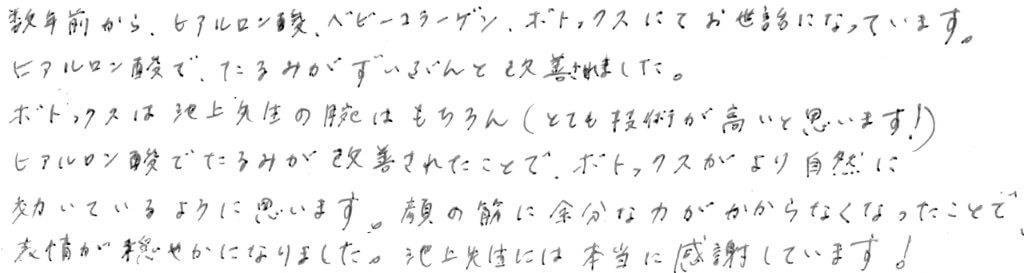 数年前から、ヒアルロン酸、ベビーコラーゲン、ボトックスにてお世話になっています。
ヒアルロン酸で、たるみがずいぶんと改善されました。
ボトックスは池上先生の腕はもちろん(とても技術が高いと思います!)
ヒアルロン酸でたるみが改善されたことで、ボトックスがより自然に
効いているように思います。顔の筋に余分な力がかからなくなったことで、
表情が穏やかになりました。池上先生には本当に感謝しています!